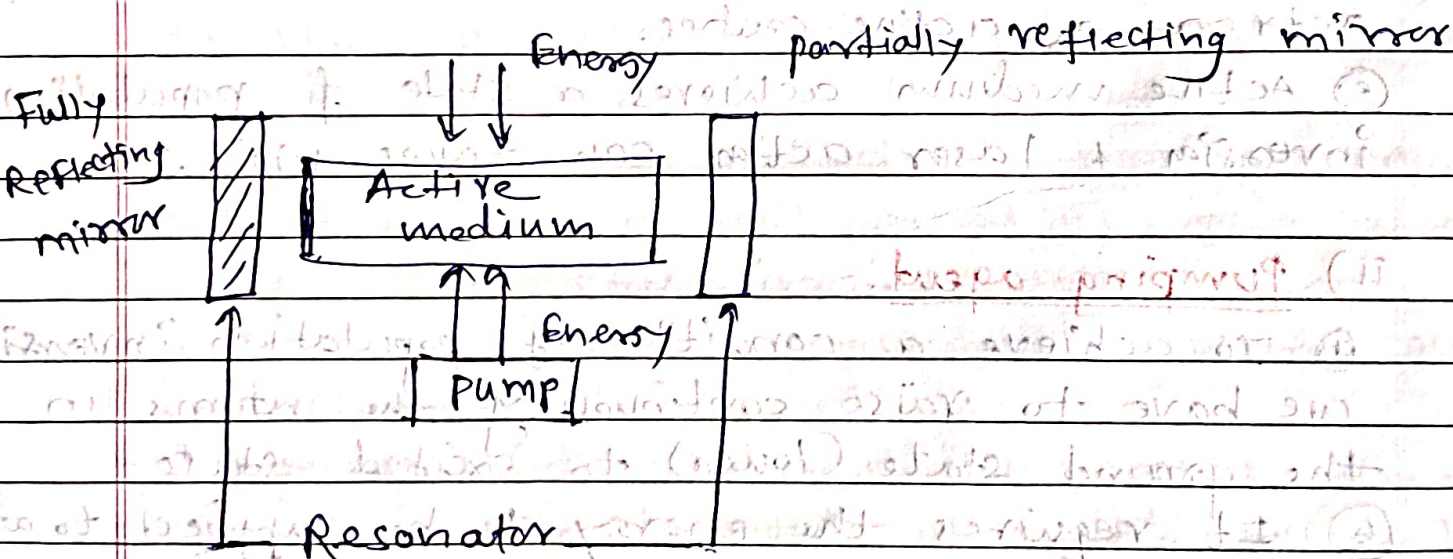 Energy
partially reflecting mirror
Fully
Reflecting
mirror
Active
medium
Energy
Pump
Resonator